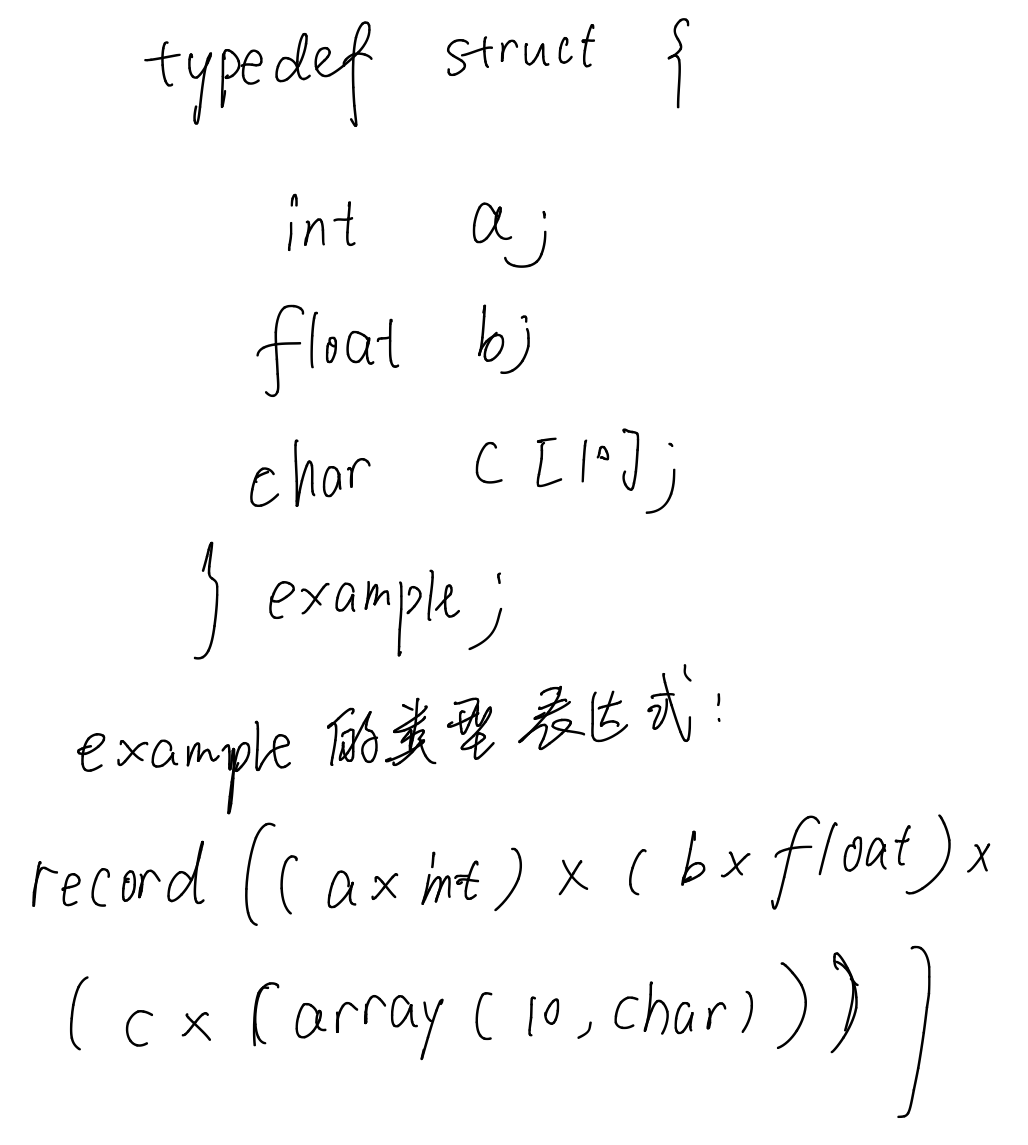 typedef struct {
int a;
float b;
char c [10];
} example;
example 的类型表达式:
record ((a × int) × (b × float) ×
(c × (array (10, char))))